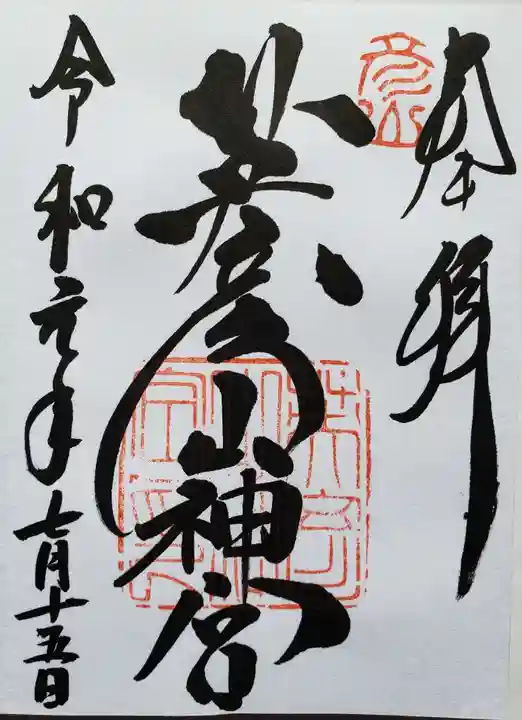 奉拝
英彦山神宮
令和元年七月十五日